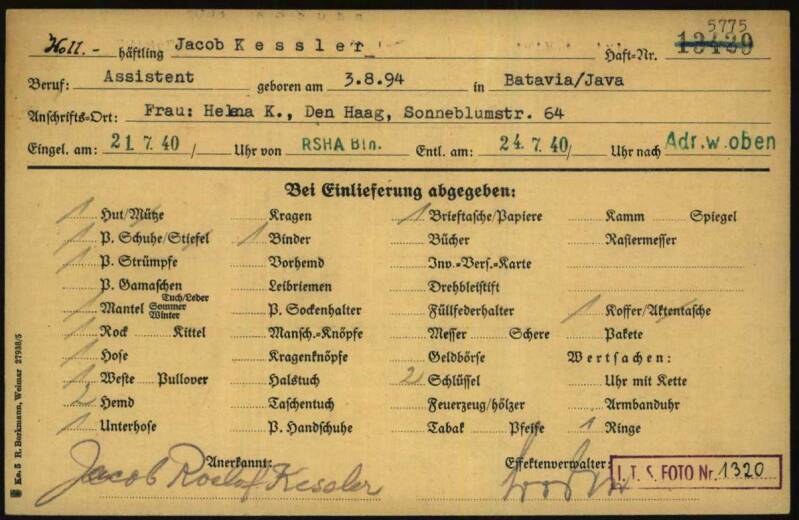 Holl.- häftling Jacob Kessler Haft-Nr. 5775 13439
Beruf: Assistent geboren am 3.8.94 in Batavia/Java
Anschrifts-Ort: Frau: Helma K., Den Haag, Sonneblumstr. 64
Eingel. am: 21. 7. 40 / Uhr von RSHA Bln. Entl. am: 24. 7. 40/ Uhr nach Adr. w. oben
Bei Einlieferung abgegeben:
1 Hut/Mütze Kragen 1 Brieftasche/Papiere Kamm Spiegel
1 P. Schuhe/Stiefel 1 Binder Bücher Rasiermesser
1 P. Strümpfe Vorhemd Inv.-Vers.-Karte
P. Gamaschen Leibriemen Drehbleistift
1 Mantel Tuch/Leder Sommer Winter P. Sockenhalter Füllfederhalter 1 Koffer/Aktentasche
1 Rock Kittel Mansch.-Knöpfe Messer Schere Pakete
1 Hose Kragenknöpfe Geldbörse Wertsachen:
1 Weste Pullover Halstuch 2 Schlüssel Uhr mit Kette
2 Hemd Taschentuch Feuerzeug/hölzer Armbanduhr
1 Unterhose P. Handschuhe Tabak Pfeife 1 Ringe
Anerkannt: Effektenverwalter:
Jacob Roelof Kessler
I. T. S. FOTO Nr. 1320
Ka. 5 R. Borkmann, Weimar 27938/5